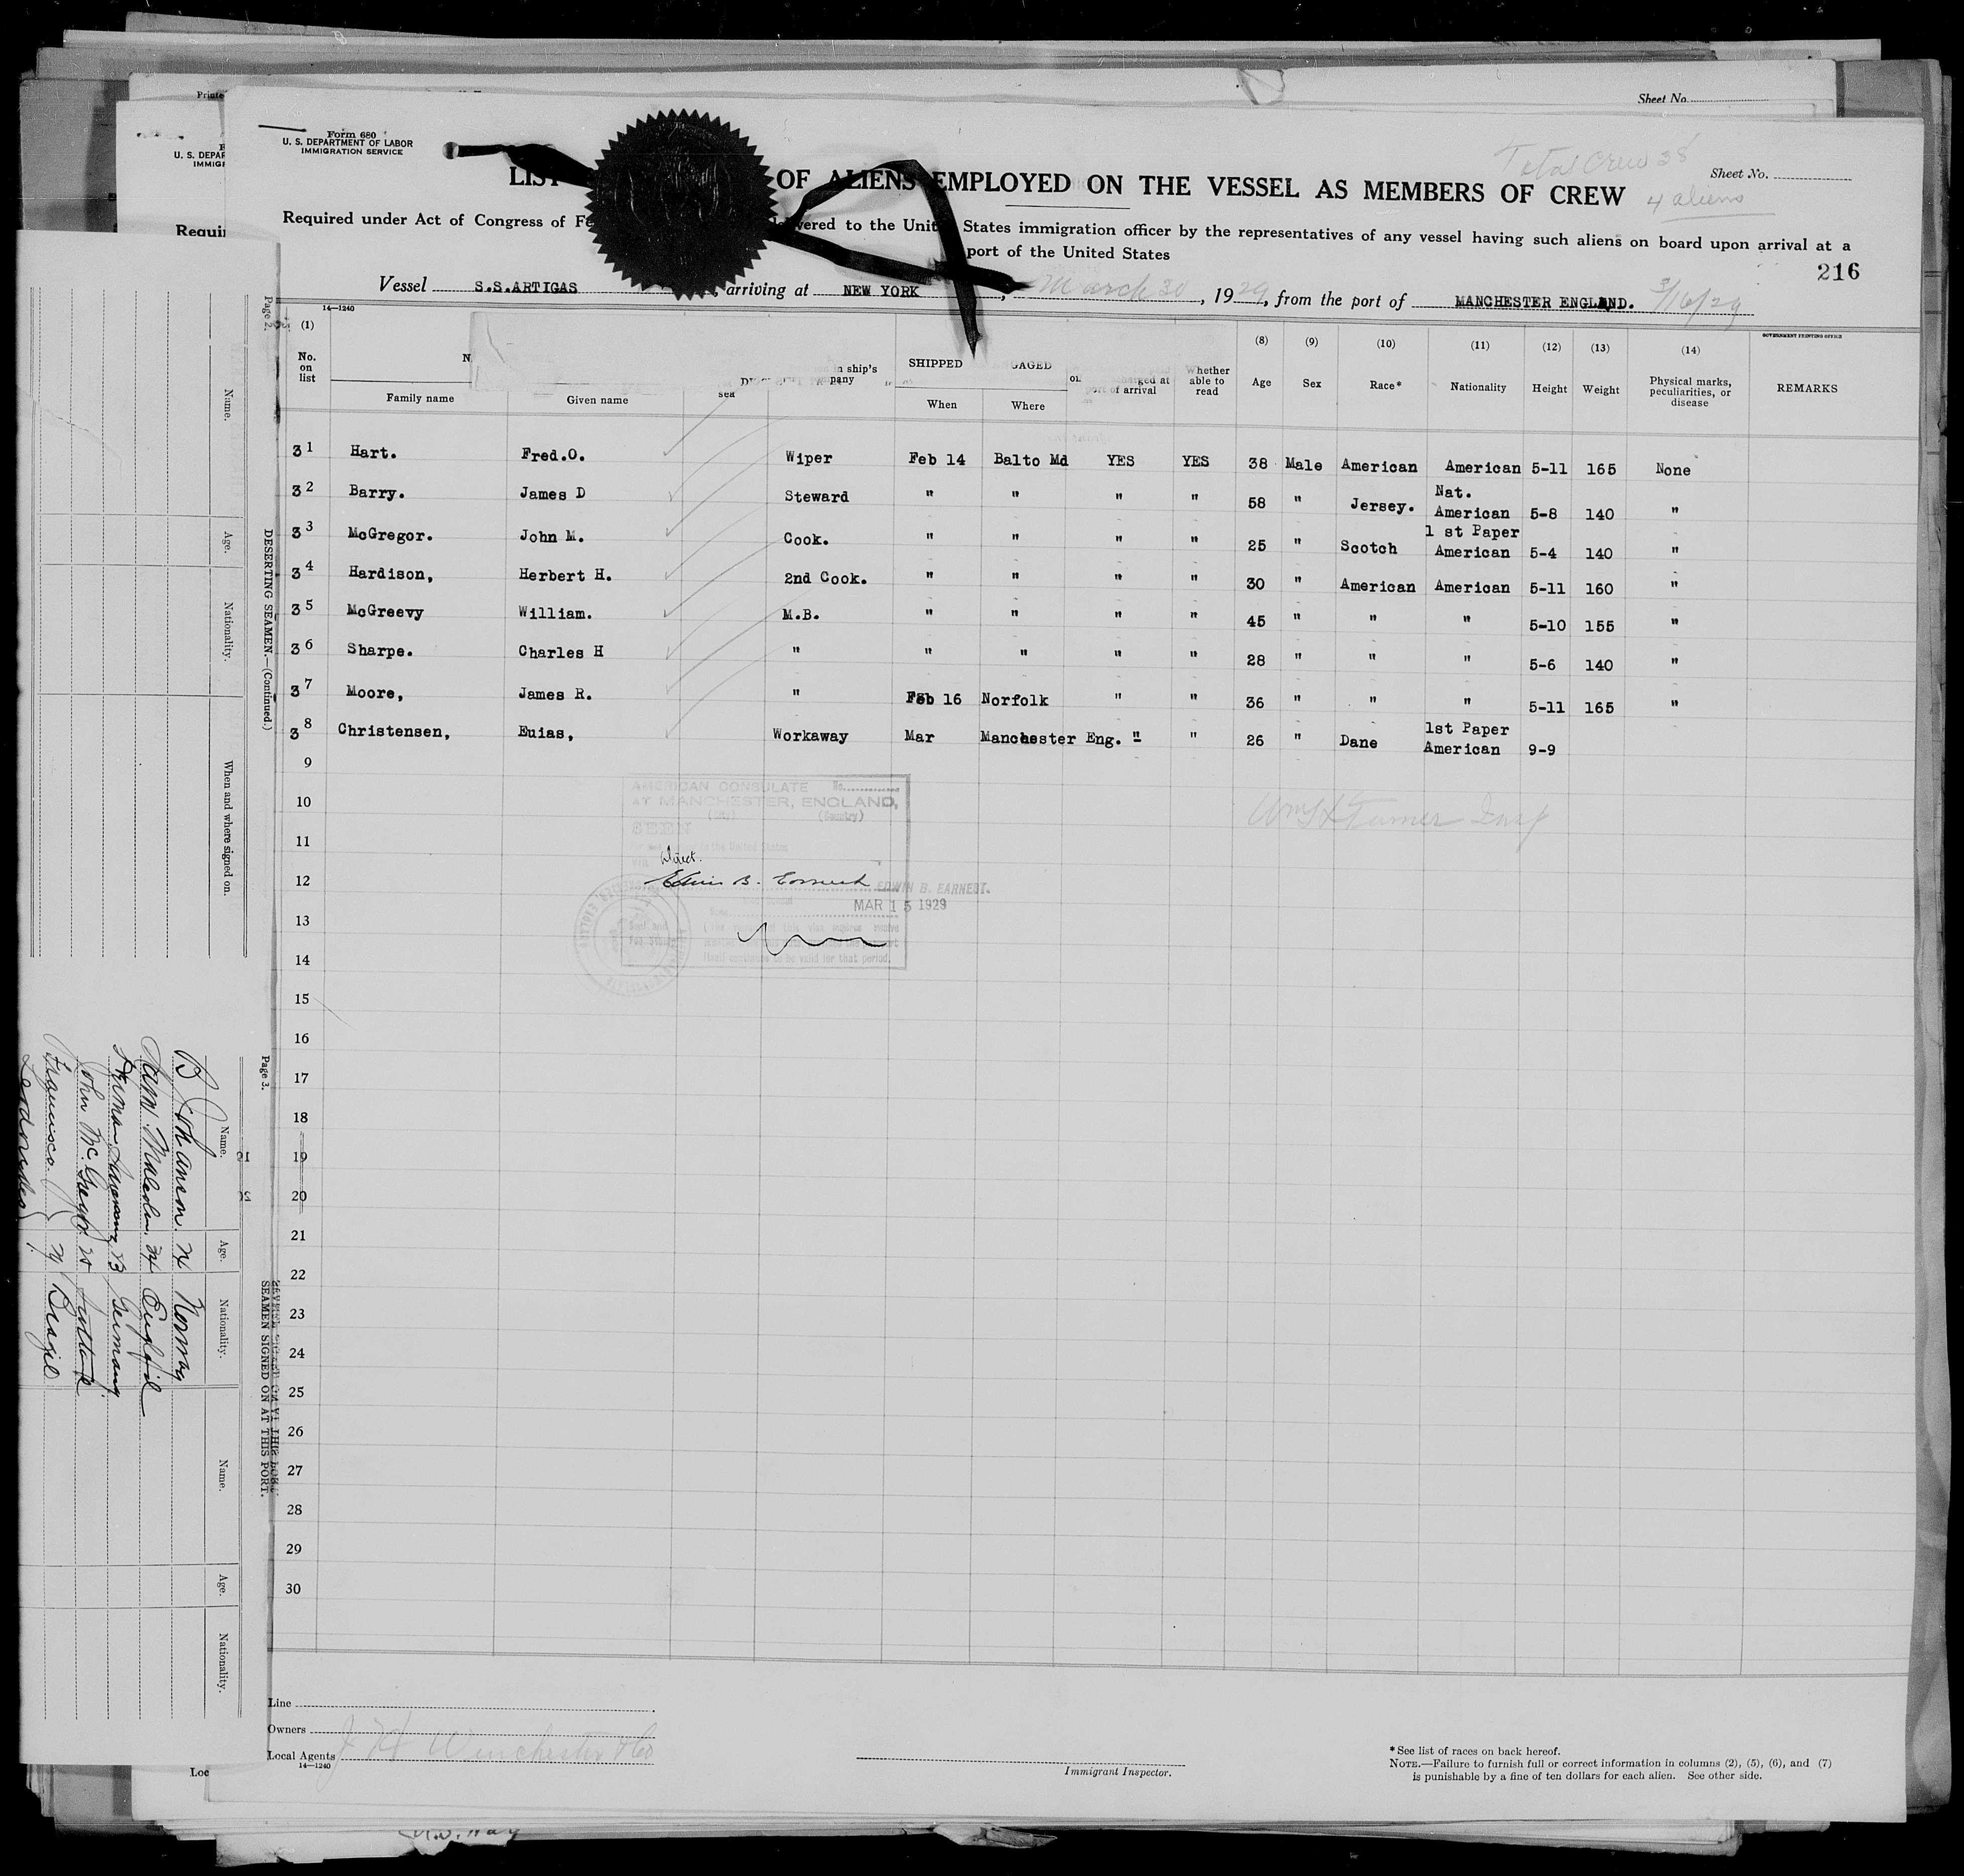 Printe
Sheet No.
Form 680
U. S. DEPARTMENT OF LABOR
IMMIGRATION SERVICE
U. S. DEPAR
IMMIG
Total Crew 38
4 aliens
Sheet No.
LIST OF ALIENS EMPLOYED ON THE VESSEL AS MEMBERS OF CREW
Requir
Required under Act of Congress of Fe livered to the Unit States immigration officer by the representatives of any vessel having such aliens on board upon arrival at a
port of the United States
216
Vessel S.S.ARTIGAS, arriving at NEW YORK, March 30, 1929, from the port of MANCHESTER ENGLAND. 3/16/29
14—1240
GOVERNMENT PRINTING OFFICE
(1) (8) (9) (10) (11) (12) (13) (14)
No. on list Family name Given name sea in ship's pany SHIPPED GAGED When Where charged at port of arrival Whether able to read Age Sex Race* Nationality Height Weight Physical marks, peculiarities, or disease REMARKS
31 Hart. Fred.O. Wiper Feb 14 Balto Md YES YES 38 Male American American 5-11 165 None
32 Barry. James D Steward " " " " 58 " Jersey. Nat. American 5-8 140 "
33 McGregor. John M. Cook. " " " " 25 " Scotch 1 st Paper American 5-4 140 "
34 Hardison, Herbert H. 2nd Cook. " " " " 30 " American American 5-11 160 "
35 McGreevy William. M.B. " " " " 45 " " " 5-10 155 "
36 Sharpe. Charles H " " " " " 28 " " " 5-6 140 "
37 Moore, James R. " Feb 16 Norfolk " " 36 " " " 5-11 165 "
38 Christensen, Euias, Workaway Mar Manchester Eng. " " 26 " Dane 1st Paper American 9-9
9
10
11
12
13
14
15
16
17
18
19
20
21
22
23
24
25
26
27
28
29
30
AMERICAN CONSULATE No.
AT MANCHESTER, ENGLAND,
(City) (Country)
SEEN
the United States
direct.
Edwin B. Earnest EDWIN B. EARNEST.
MAR 15 1929
itself continues to be valid for that period.
Wm Turner Insp
Line
Owners
Local Agents J H Winchester & Co
14—1240
Immigrant Inspector.
*See list of races on back hereof.
NOTE.—Failure to furnish full or correct information in columns (2), (5), (6), and (7)
is punishable by a fine of ten dollars for each alien. See other side.
Loc
Page 2.
DESERTING SEAMEN.—(Continued.)
Name. Age. Nationality. When and where signed on.
Page 3.
SEAMEN SIGNED ON AT THIS PORT.
Name. Age. Nationality. Name. Age. Nationality.
B Johansen 24 Norway
Malcolm 34 England
Herman Germany
John McGregor 25
Francisco Brazil